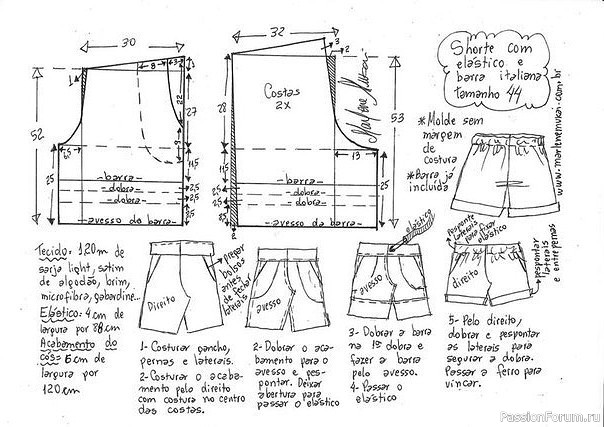 30
32
Shorte com
elástico e
barra italiana
tamanho 44
www.marlenemukai.com.br
1
8
3
22
27
9
52
6,5
25
11,5
2,5
2,5
barra
dobra
dobra
avesso da barra
3
2
Costas
2X
Marlene Mukai
28
53
13
11,5
25
25
barra
dobra
dobra
avesso da barra
2
* Molde sem
márgem
de
costura
* Barra já
incluída
Tecido: 1,20m de
sarja light, satim
de algodão, brim,
microfibra, gabardine...
Elástico: 4cm de
largura por 88cm
Acabamento do
cós: 6cm de
largura por
120cm
Direito
pregar
bolsos
antes
de fechar
laterais
avesso
avesso
elástico
direito
Pesponte
laterais
para fixar
elástico
pespontar
laterais
e entrepernas
1- Costurar gancho,
pernas e laterais.
2- Costurar o acaba-
mento pelo direito
com costura no centro
das costas.
2- Dobrar o aca-
bamento para o
avesso e pes-
pontar. Deixar
abertura para
passar o elástico
3- Dobrar a barra
na 1ª dobra e
fazer a barra
pelo avesso.
4- Passar o
elástico
5- Pelo direito,
dobrar e pespontar
as laterais para
segurar a dobra.
Passar a ferro para
vincar.
PassionForum.ru